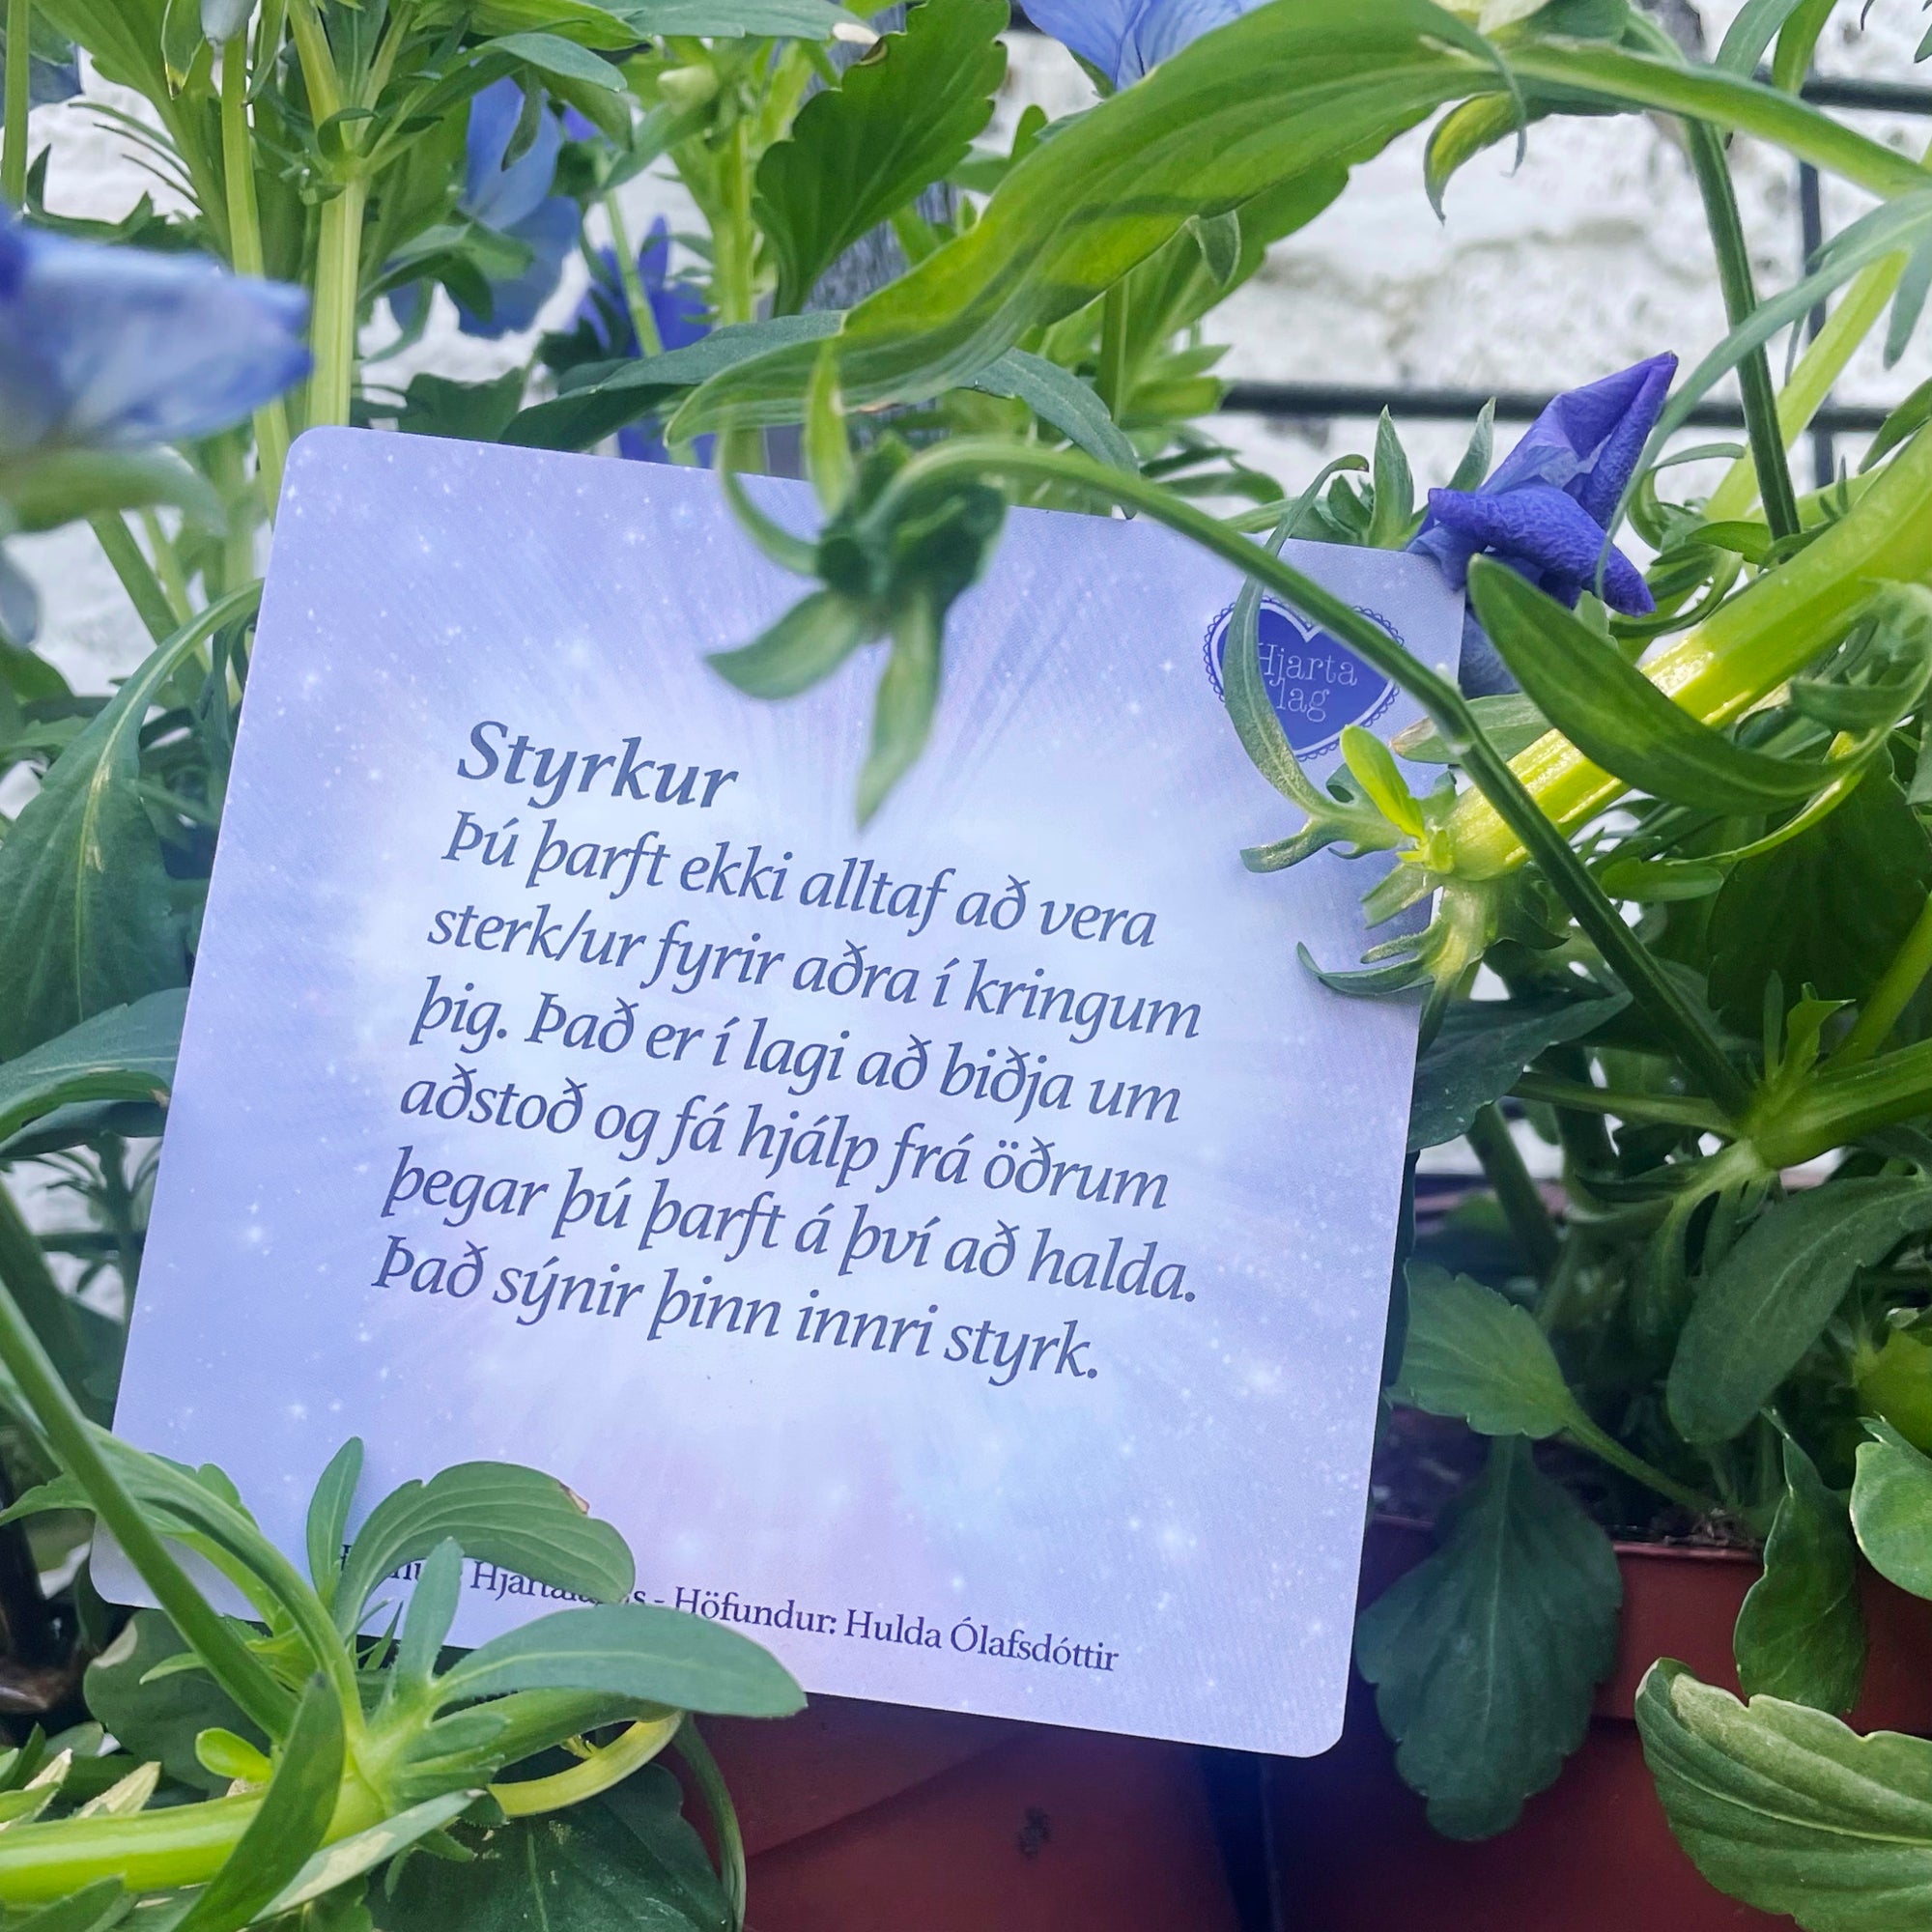 Hjarta
lag
Styrkur
Þú þarft ekki alltaf að vera
sterk/ur fyrir aðra í kringum
þig. Það er í lagi að biðja um
aðstoð og fá hjálp frá öðrum
þegar þú þarft á því að halda.
Það sýnir þinn innri styrk.
- Höfundur: Hulda Ólafsdóttir